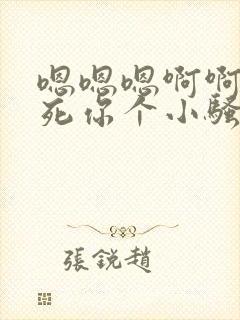 嗯嗯嗯啊啊
死你个小骚
張銳趙